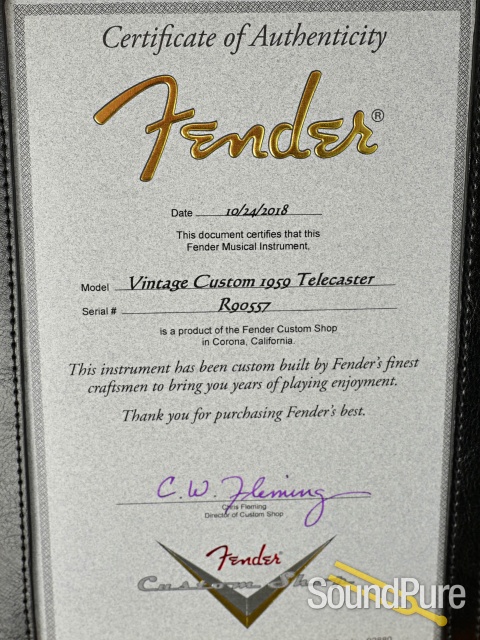 Certificate of Authenticity
Fender®
Date 10/24/2018
This document certifies that this
Fender Musical Instrument.
Model Vintage Custom 1959 Telecaster
Serial # R90557
is a product of the Fender Custom Shop
in Corona, California.
This instrument has been custom built by Fender's finest
craftsmen to bring you years of playing enjoyment.
Thank you for purchasing Fender's best.
C.W. Fleming
Chris Fleming
Director of Custom Shop
Fender
Custom Shop
SoundPure